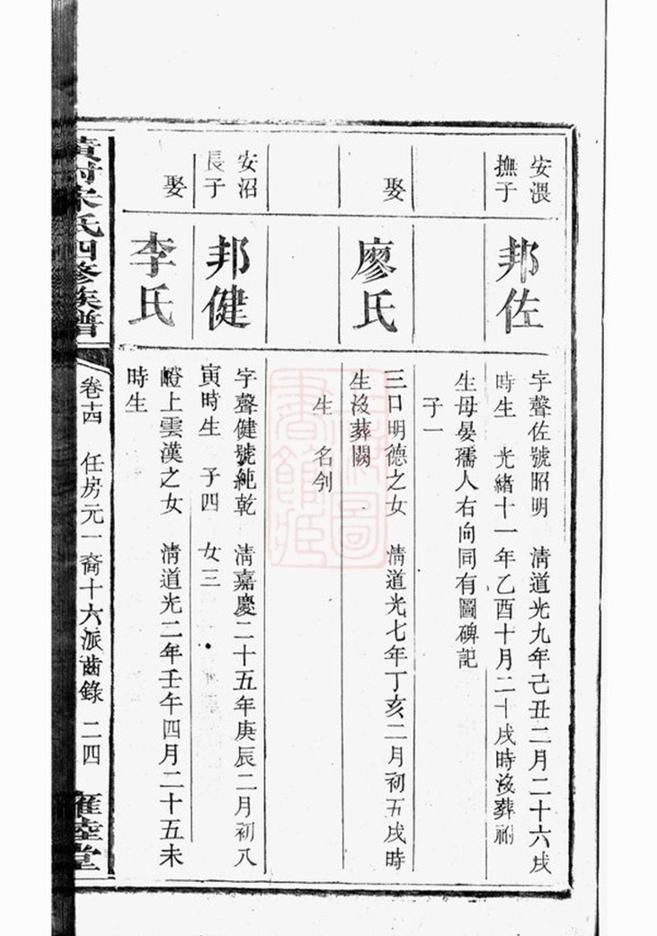 安渨
撫子
邦佐
字聲佐號昭明　清道光九年己丑二月二十六戌
時生　光緒十一年乙酉十月二十戌時沒葬祔
生母晏孺人右向同有圖碑記
子一
娶
廖氏
三口明德之女　清道光七年丁亥二月初五戌時
生沒葬闕
生　名劊
安沼
長子
邦健
字聲健號純乾　清嘉慶二十五年庚辰二月初八
寅時生　子四　女三
娶
李氏
嶝上雲漢之女　清道光二年壬午四月二十五未
時生
氏四修族譜
卷十四　任房元一裔十六派齒錄　二四
雍睦堂